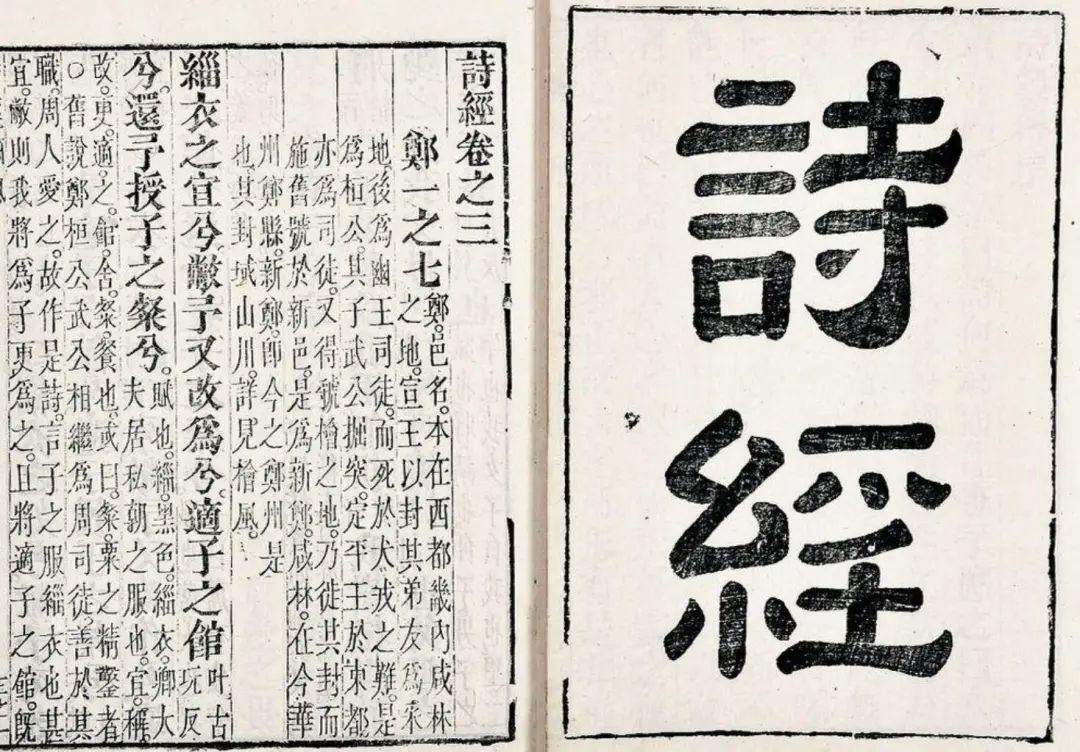 詩經
詩經卷之三
鄭一之七
鄭。邑名。本在西都畿內咸林
之地。宣王以封其弟友爲采
地後爲幽王司徒。而死於犬戎之難。是
爲桓公。其子武公掘突。定平王於東都
亦爲司徒。又得虢檜之地。乃徙其封而
施舊號於新邑。是爲新鄭。咸林。在今華
州鄭縣。新鄭。卽今之鄭州。是
也。其封域山川。詳見檜風。
緇衣之宜兮。敝予又改爲兮。適子之館
叶古
玩反
兮。還予授子之粲兮。
賦也。緇。黑色。緇衣。卿大
夫居私朝之服也。宜。稱。
改。更。適。之。館。舍。粲。餐也。或曰。粲。粟之精鑿者
○舊說鄭桓公武公相繼爲周司徒。善於其
職。周人愛之。故作是詩。言子之服緇衣也。甚
宜。敝則我將爲子更爲之。且將適子之館。旣